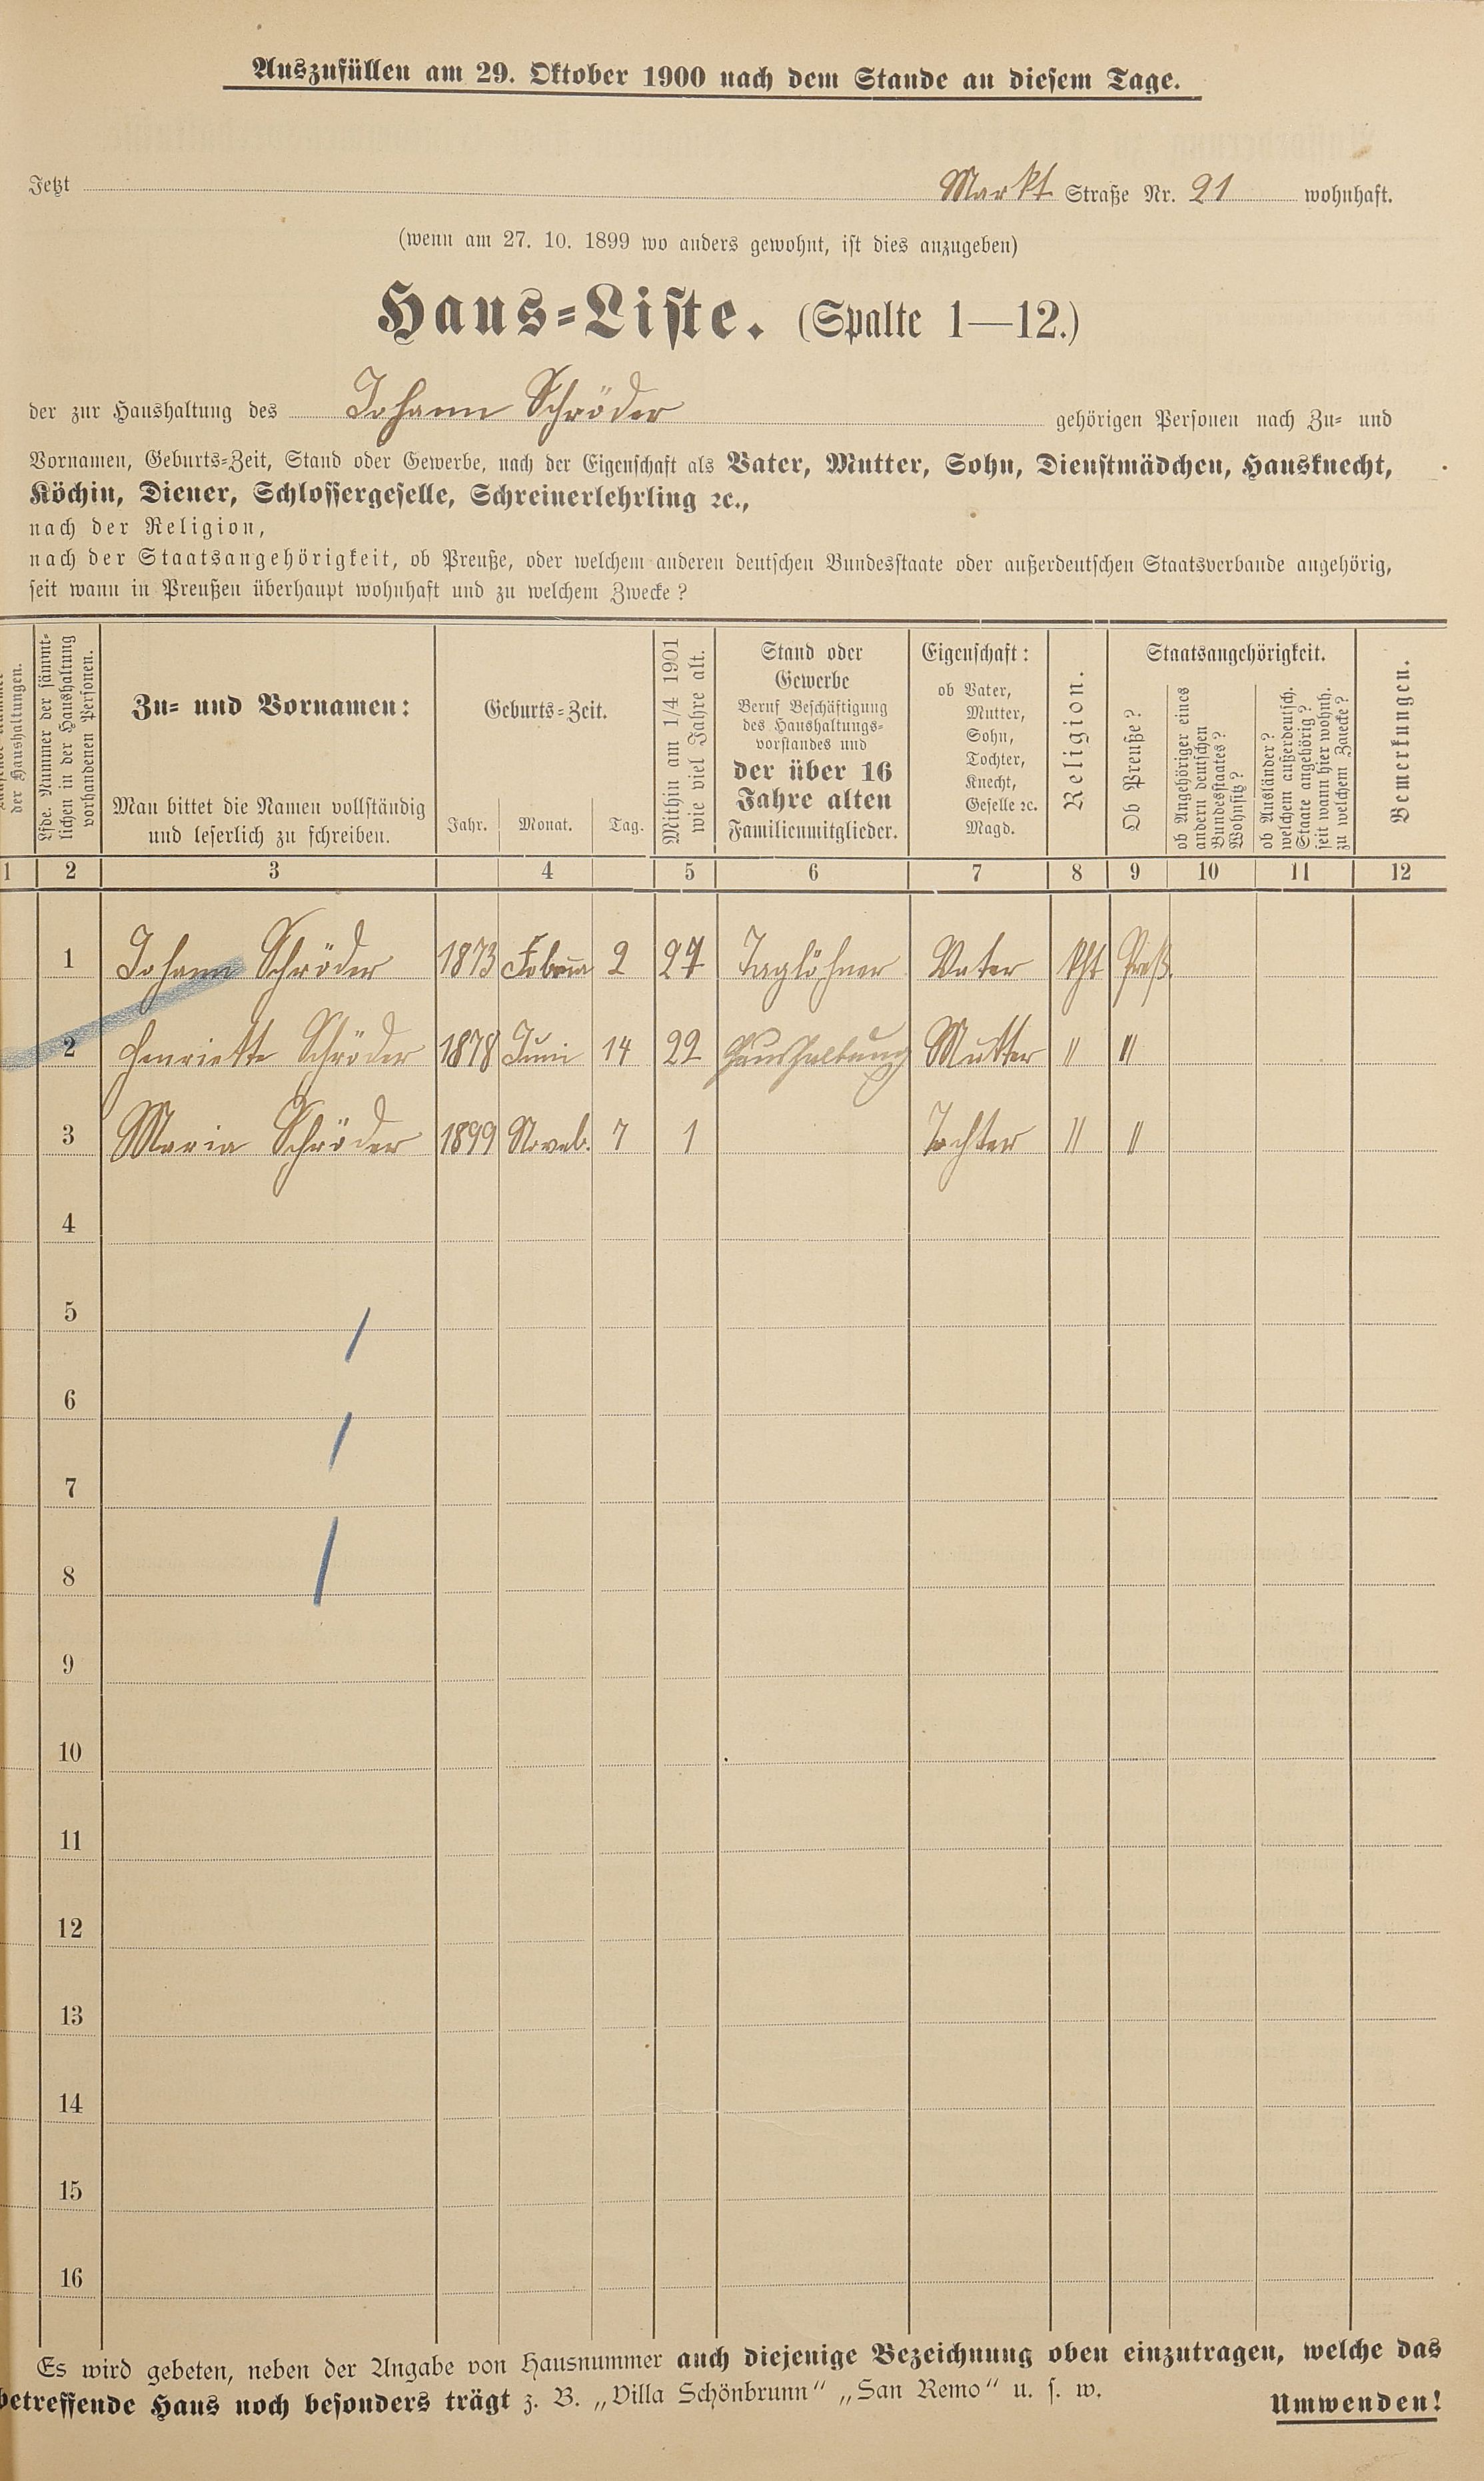 Auszufüllen am 29. Oktober 1900 nach dem Stande an diesem Tage.
Jetzt Markt Straße Nr. 21 wohnhaft.
(wenn am 27. 10. 1899 wo anders gewohnt, ist dies anzugeben)
Haus=Liste. (Spalte 1—12.)
der zur Haushaltung des Johann Schröder gehörigen Personen nach Zu= und
Vornamen, Geburts=Zeit, Stand oder Gewerbe, nach der Eigenschaft als Vater, Mutter, Sohn, Dienstmädchen, Hausknecht,
Köchin, Diener, Schlossergeselle, Schreinerlehrling ꝛc.,
nach der Religion,
nach der Staatsangehörigkeit, ob Preuße, oder welchem anderen deutschen Bundesstaate oder außerdeutschen Staatsverbande angehörig,
seit wann in Preußen überhaupt wohnhaft und zu welchem Zwecke?
der Haushaltungen.
Lfde. Nummer der sämmt=
lichen in der Haushaltung
vorhandenen Personen.
Zu= und Vornamen:
Man bittet die Namen vollständig
und leserlich zu schreiben.
Geburts=Zeit.
Jahr. Monat. Tag.
Mithin am 1/4 1901
wie viel Jahre alt.
Stand oder
Gewerbe
Beruf Beschäftigung
des Haushaltungs=
vorstandes und
der über 16
Jahre alten
Familienmitglieder.
Eigenschaft:
ob Vater,
Mutter,
Sohn,
Tochter,
Knecht,
Geselle ꝛc.
Magd.
Religion.
Staatsangehörigkeit.
Ob Preuße?
ob Angehöriger eines
andern deutschen
Bundesstaates?
Wohnsitz?
ob Ausländer?
welchem außerdeutsch.
Staate angehörig?
seit wann hier wohnh.
zu welchem Zwecke?
Bemerkungen.
1 2 3 4 5 6 7 8 9 10 11 12
1 Johann Schröder 1873 Februa 2 27 Taglöhner Vater kht Preß.
2 Henriette Schröder 1878 Juni 14 22 Haushaltung Mutter " "
3 Maria Schröder 1899 Novemb. 7 1 Tochter " "
4
5
6
7
8
9
10
11
12
13
14
15
16
Es wird gebeten, neben der Angabe von Hausnummer auch diejenige Bezeichnung oben einzutragen, welche das
betreffende Haus noch besonders trägt z. B. „Villa Schönbrunn" „San Remo" u. s. w.
Umwenden!